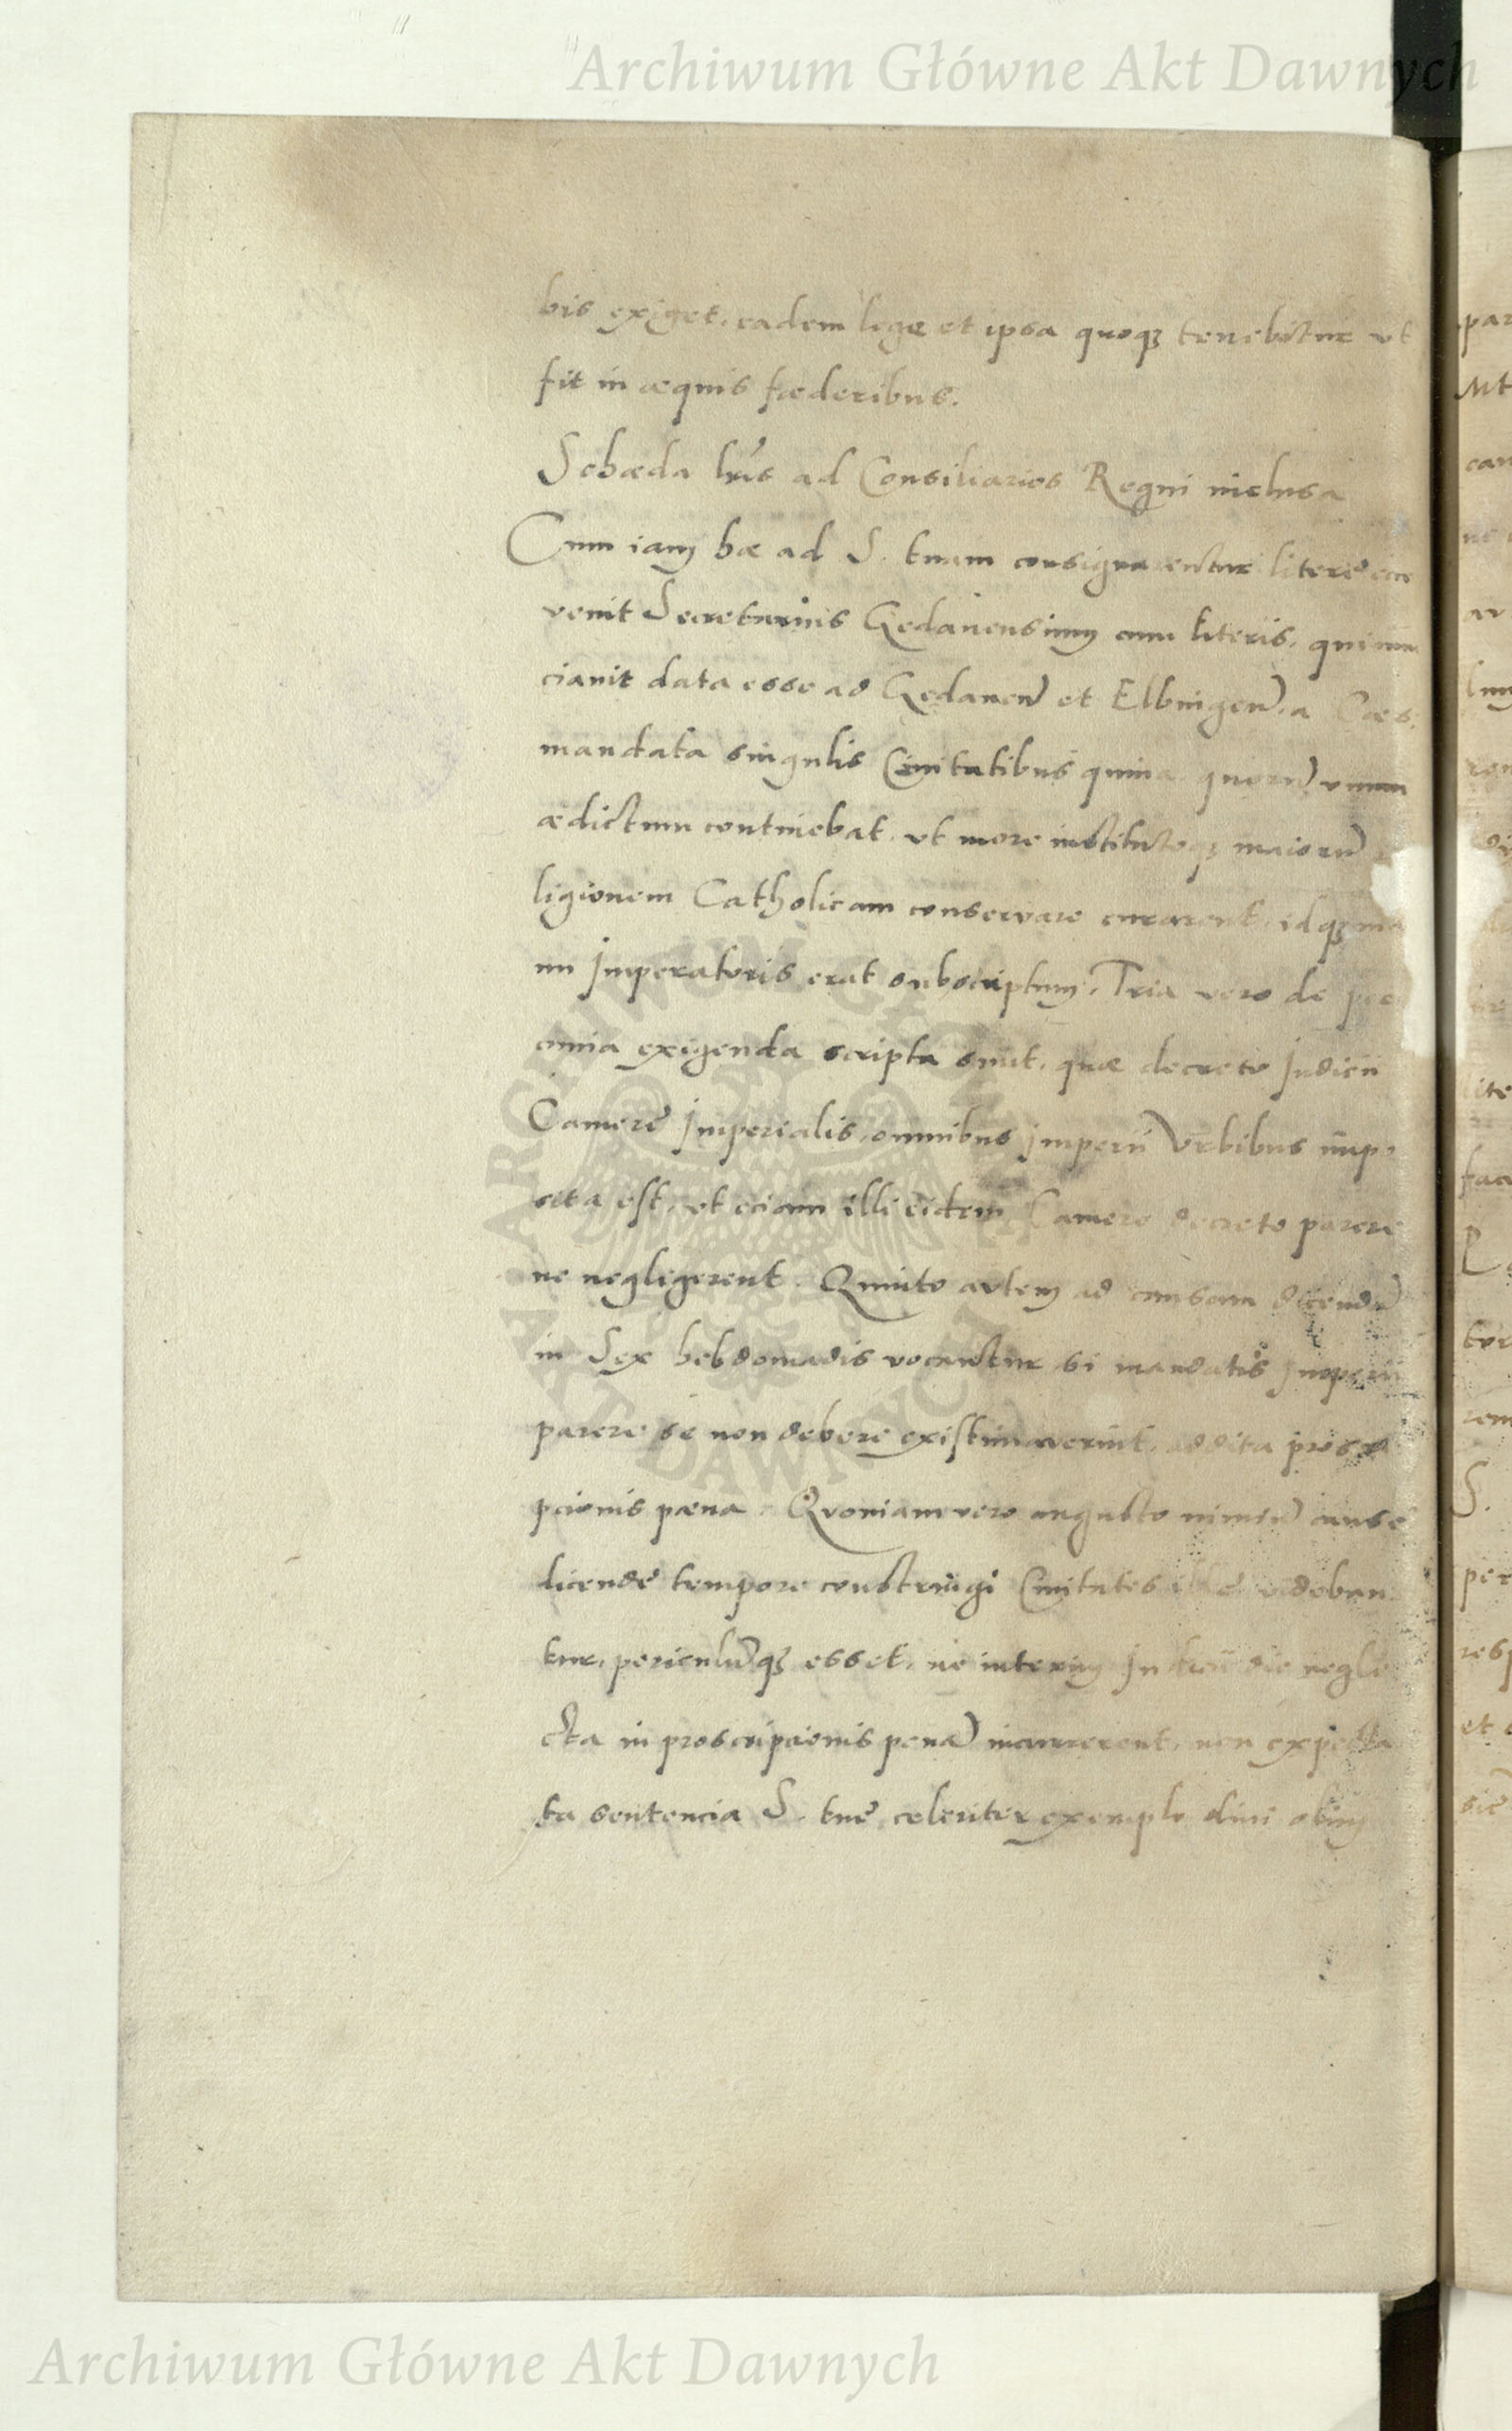 Archiwum Główne Akt Dawnych
bis exiget, eadem lege et ipsa quoqȝ tenebitur vt
fit in æquis fæderibus.
Schæda lr̃is ad Consiliarios Regni inclusa
Cum iam hæ ad S. tuam consignarentur literę
venit Secretarius Gedanensium cum literis, qui nun
ciavit data esse ad Gedanen̄ et Elbingen̄, a Cæs.
mandata singulis Civitatibus quina quorū vnum
ædictum continebat, vt more institutoqȝ maiorū
ligionem Catholicam conservare curarent, idqȝ ma
nu Imperatoris erat subscriptum, Tria vero de pe
cunia exigenda scripta sunt, quæ decreto Iudicii
Camerę Imperialis, omnibus Imperii Vrbibus imp
sita est, et eciam illi eidem Camerę decreto parere
ne negligerent. Quinto avtem ad causam dicendā
in Sex hebdomadis vocantur si mandatis Imperii
parere se non debere existimaverint, addita proscr
pcionis pæna. Qvoniam vero angusto nimiū causę
dicendę tempore constringi Civitates illę videban
tur, periculūqȝ esset, ne interim die negle
cta in proscripcionis penā incurrerent, non expecta
ta sentencia S. tuę, celeriter exemplo divi olim
ARCHIWUM GŁÓWNE AKT DAWNYCH
Archiwum Główne Akt Dawnych